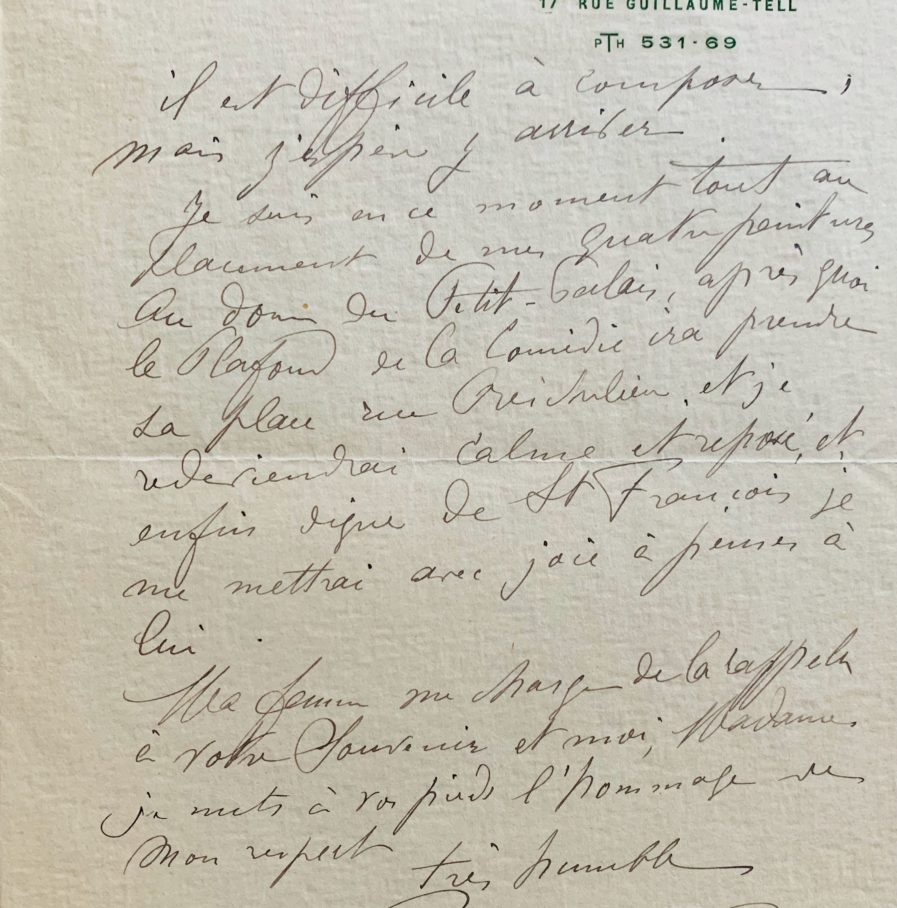 17 RUE GUILLAUME-TELL
PTH 531·69
il est difficile à composer,
mais j'espère y arriver
Je suis en ce moment tout au
placement de mes quatre peintures
au dome du Petit-Palais, après quoi
le Plafond de la Comédie ira prendre
sa place rue Richelieu, et je
redeviendrai calme et reposé, et
enfin digne de St François je
me mettrai avec joie à penser à
lui.
Ma femme me charge de la rappeler
à votre Souvenir et moi, Madame,
je mets à vos pieds l'hommage de
mon respect
très humble